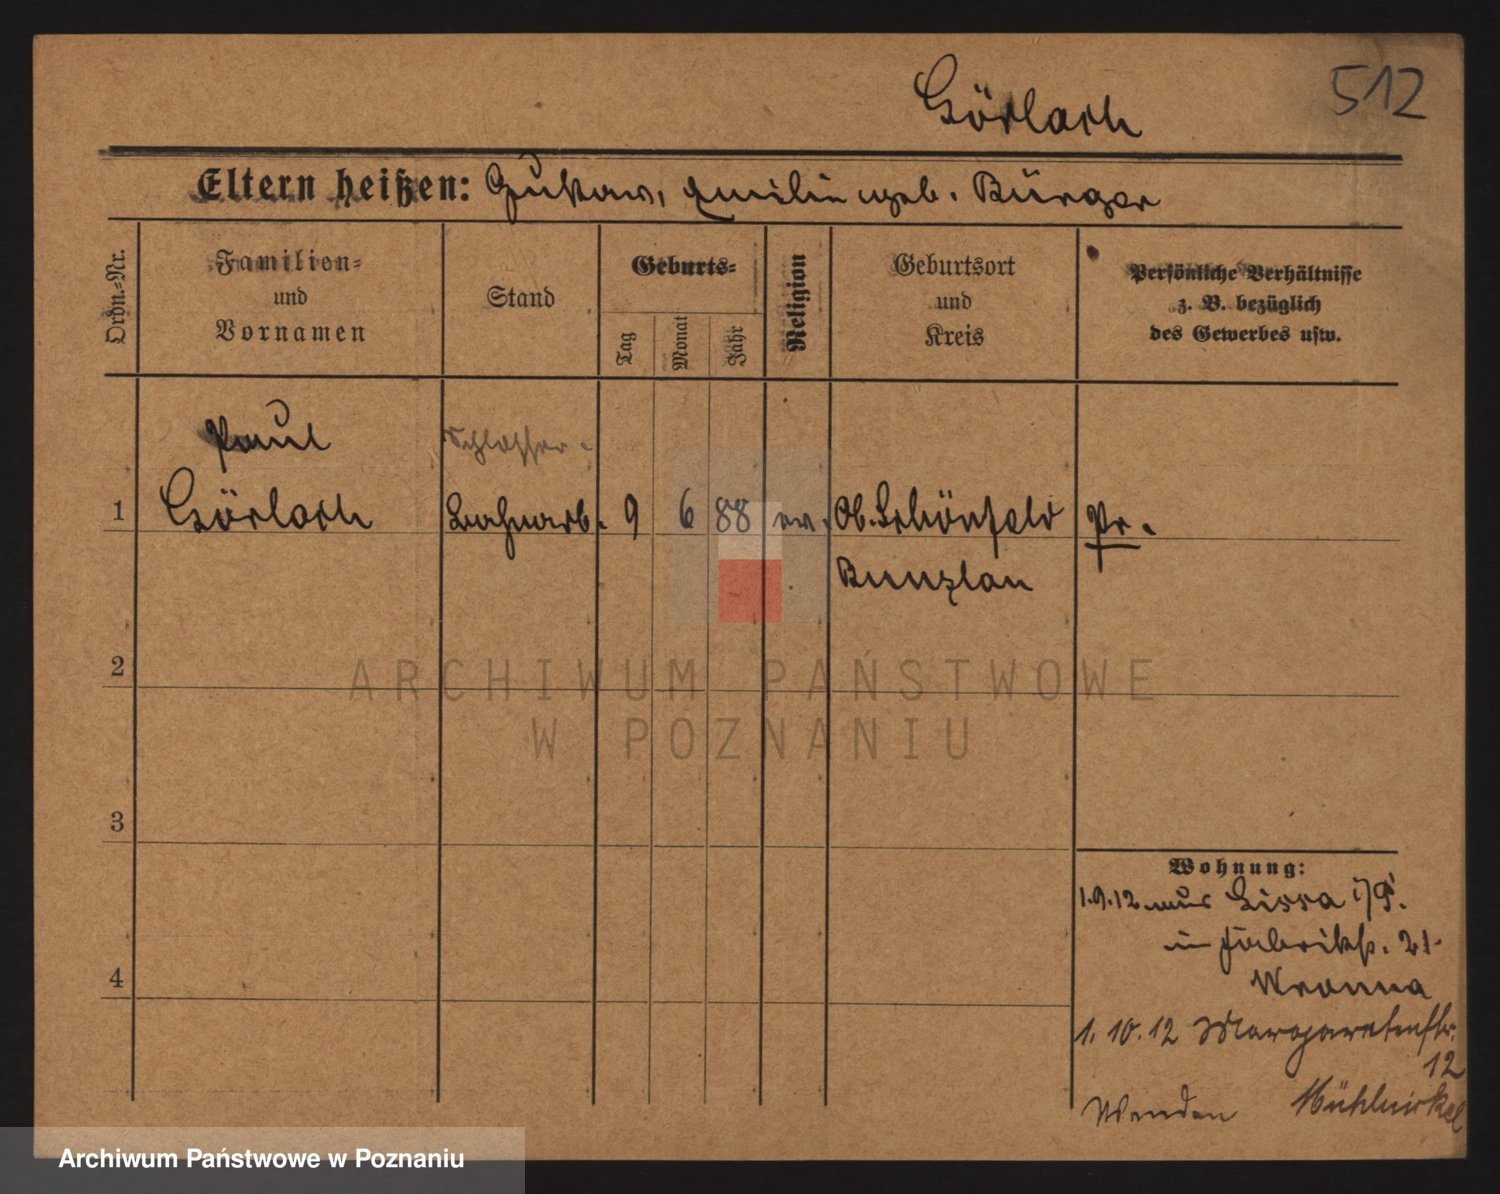 512
Görlach
Eltern heißen: Gustav, Emilie geb. Bürger
Ordn.-Nr.
Familien-
und
Vornamen
Stand
Geburts-
Tag
Monat
Jahr
Religion
Geburtsort
und
Kreis
Persönliche Verhältnisse
z. B. bezüglich
des Gewerbes usw.
Paul
Schlosser.
1 Görlach Bahnarb. 9 6 88 ev. Ob. Schönfeld Pr.
Bunzlau
2
3
4
Wohnung:
1.9.12 aus Lissa i/P.
in Fabrikst. 21
Wronna
1. 10. 12 Margaretenstr.
12
Wenden
ARCHIWUM PAŃSTWOWE
W POZNANIU
Archiwum Państwowe w Poznaniu